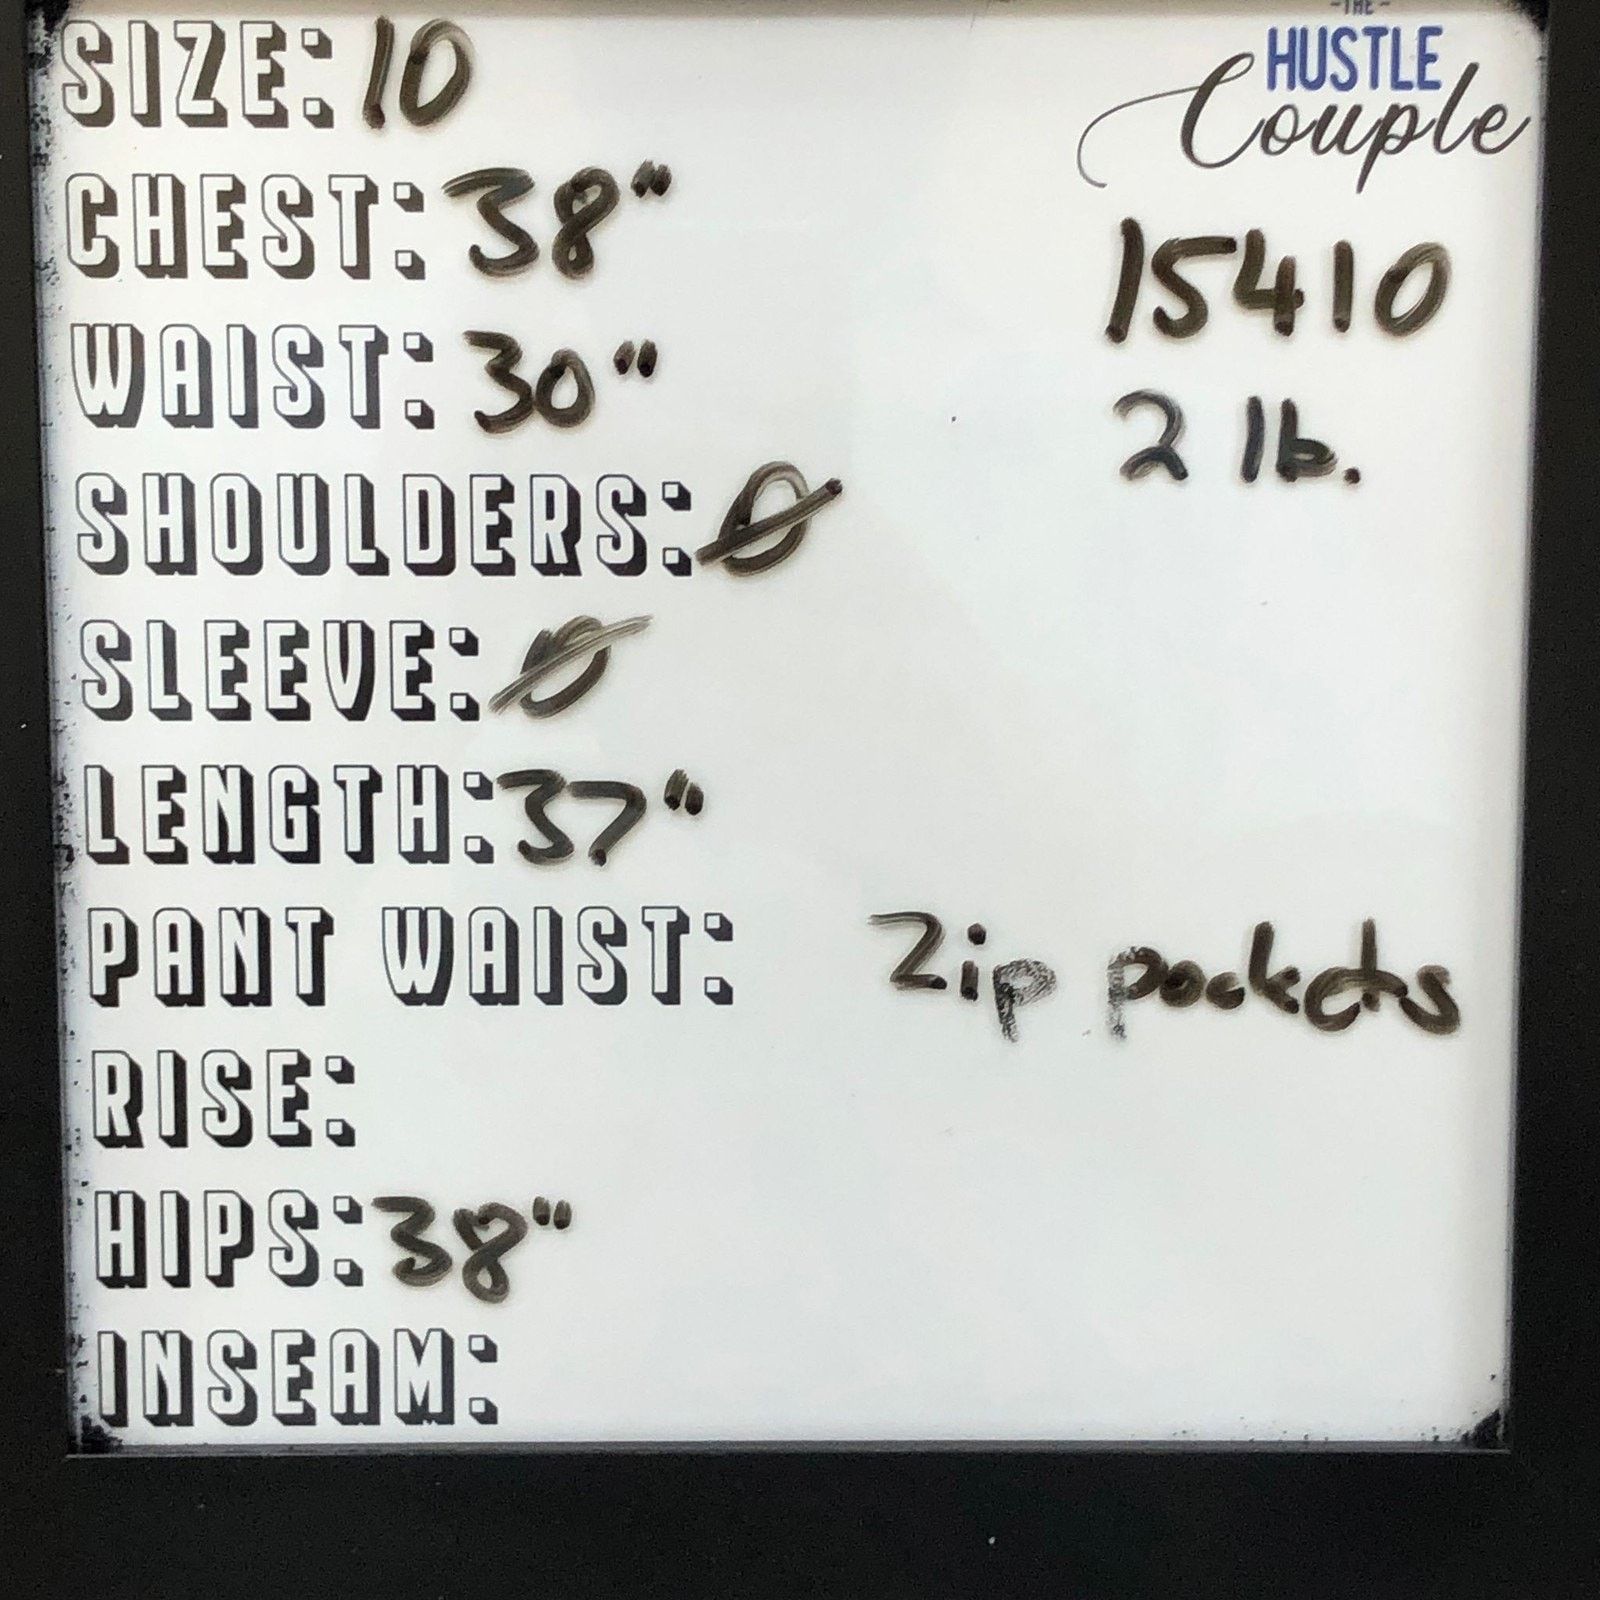 -THE-
HUSTLE
Couple
SIZE: 10
CHEST: 38"
15410
WAIST: 30"
2 lb.
SHOULDERS: Ø
SLEEVE: Ø
LENGTH: 37"
PANT WAIST:
Zip pockets
RISE:
HIPS: 38"
INSEAM: